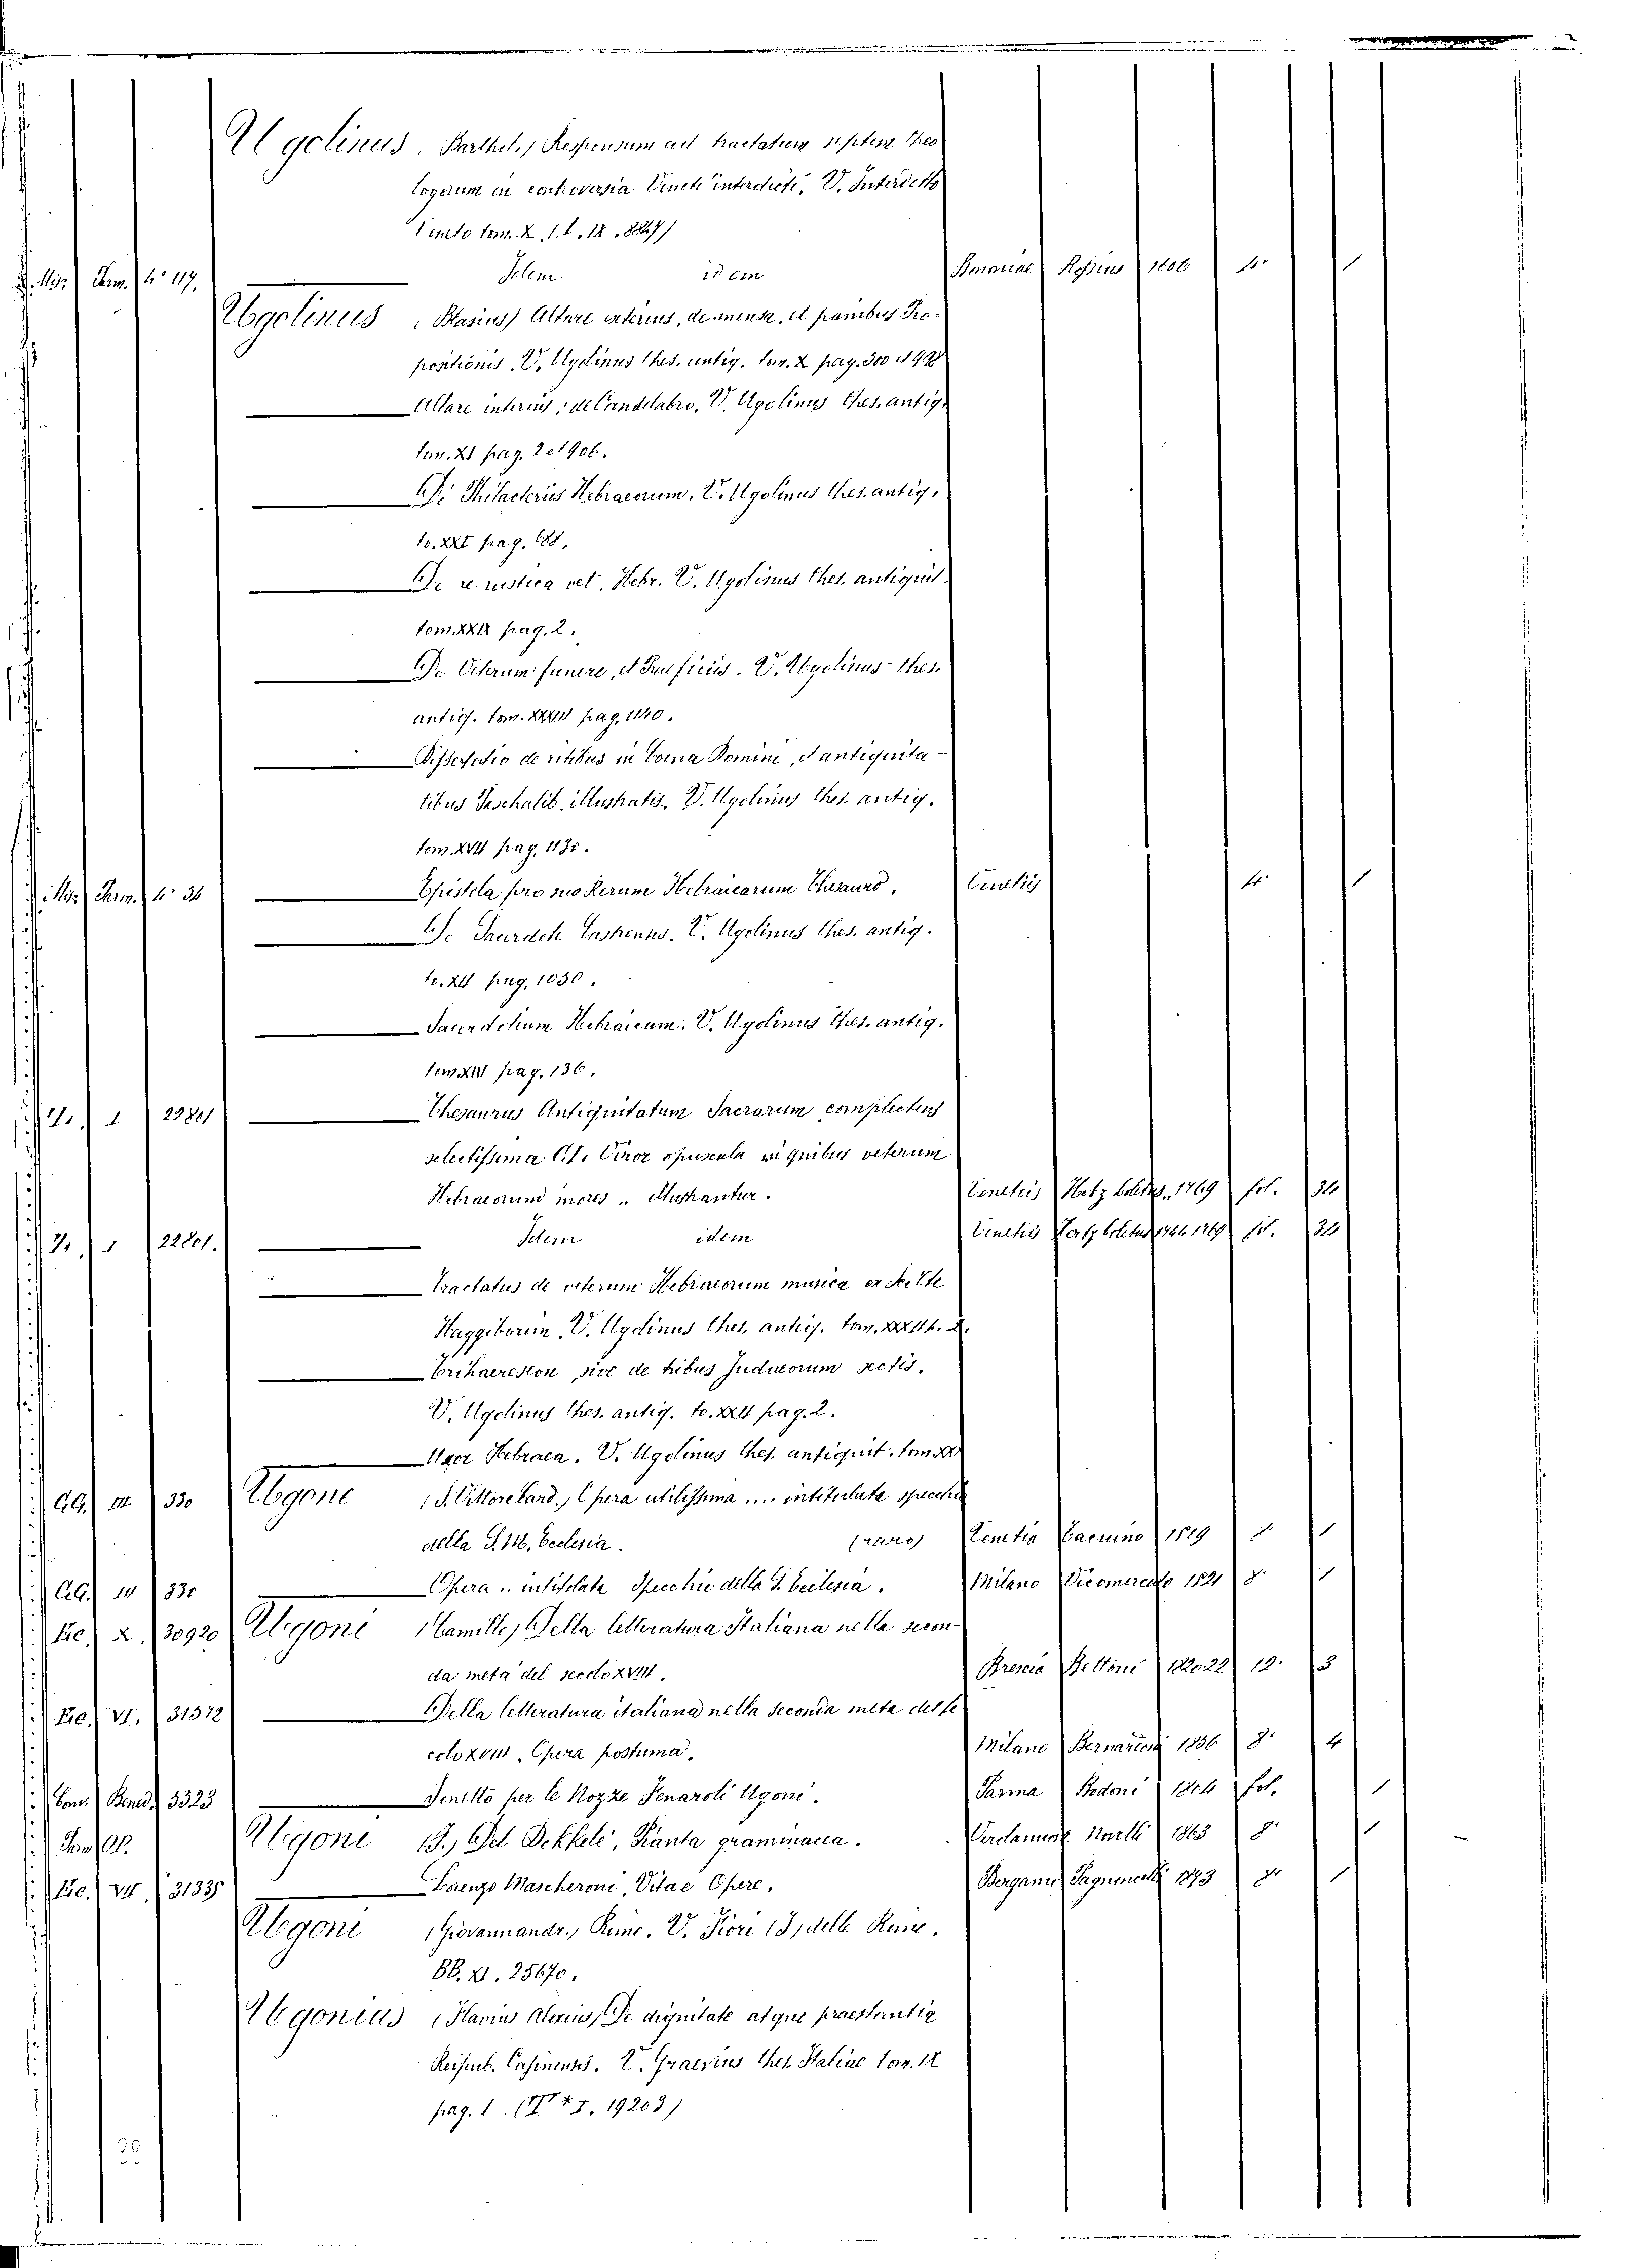 Ugolinus, Barthol., Responsum ad tractatum septem theo
logorum in controversia Venete interdicti, V. Interdetto
Veneto tom. X.
Misc. Parm. 4° 117. Idem idem Bononiae Rossius 1606 4° 1
Ugolinus (Blasius) Altare interius, de mensa, et panibus Pro-
positionis. V. Ugolinus thes. antiq. tom. X pag. 300
Altare interius, de Candelabro, V. Ugolinus thes. antiq.
tom. XI pag. 2 et 906.
De Philacteriis Hebraeorum. V. Ugolinus thes. antiq.
to. XXI pag. 688.
De re rustica vet. Hebr. V. Ugolinus thes. antiquit.
tom. XXIX pag. 2.
De Veterum funere, et Praeficiis. V. Ugolinus thes.
antiq. tom. XXXIII pag. 1140.
Dissertatio de ritibus in Coena Domini, d'antiquita-
tibus Paschalib. illustratis. V. Ugolinus thes. antiq.
tom. XVII pag. 1130.
Misc. Parm. 4° 34 Epistola pro suo Rerum Hebraicarum Thesauro. Venetiis 4° 1
De Sacerdote Castrensi. V. Ugolinus thes. antiq.
to. XII pag. 1030.
Sacerdotium Hebraicum. V. Ugolinus thes. antiq.
tom XIII pag. 136.
I 22801 Thesaurus Antiquitatum Sacrarum complectens
selectissima Cl. Viror opuscula in quibus veterum
Hebraeorum mores .. illustrantur. Venetiis Hertz 1769 fol. 34
I 22801. Idem idem Venetiis Hertz 1744 1769 fol. 34
Tractatus de veterum Hebraeorum musica ex Scilte
Haggiborim. V. Ugolinus thes. antiq. tom. XXXII p. 2.
Trihaereseon sive de tribus Judaeorum sectis.
V. Ugolinus thes. antiq. to. XXII pag. 2.
Uxor Hebraea. V. Ugolinus thes. antiquit. tom XXX
GG. III 330 Ugone (S. Vittore Card.) Opera utilissima .... intitulata specchio
della S. M. Ecclesia. (raro) Venetia Tacuino 1519 8. 1
GG. III 330 Opera .. intitolata Specchio della S. Ecclesia. Milano Vicomercato 1521 8° 1
Ee. X. 30920 Ugoni (Camillo) Della letteratura Italiana nella secon-
da metà del secolo XVIII. Brescia Bettoni 1820 22 12. 3
Ee. VI. 31572 Della letteratura italiana nella seconda metà del se
colo XVIII. Opera postuma. Milano Bernardoni 1856 8° 4
Con. Bened. 5323 Sonetto per le Nozze Fenaroli Ugoni. Parma Bodoni 1804 fol. 1
Parm Ugoni (F.) Del Dekkelè, Pianta graminacea. Verolanuova 1863 8° 1
Ee. VII 31335 Lorenzo Mascheroni, Vita e Opere. Bergamo Pagnoncelli 1873 8° 1
Ugoni (Giovannandr.) Rime. V. Fiori (I) delle Rime.
BB. XI. 25670.
Ugonius (Flavius Alexius) De dignitate atque praestantia
Reipub. Casinensis. V. Graevius thes. Italiae tom. IX
pag. 1. I. 19203)